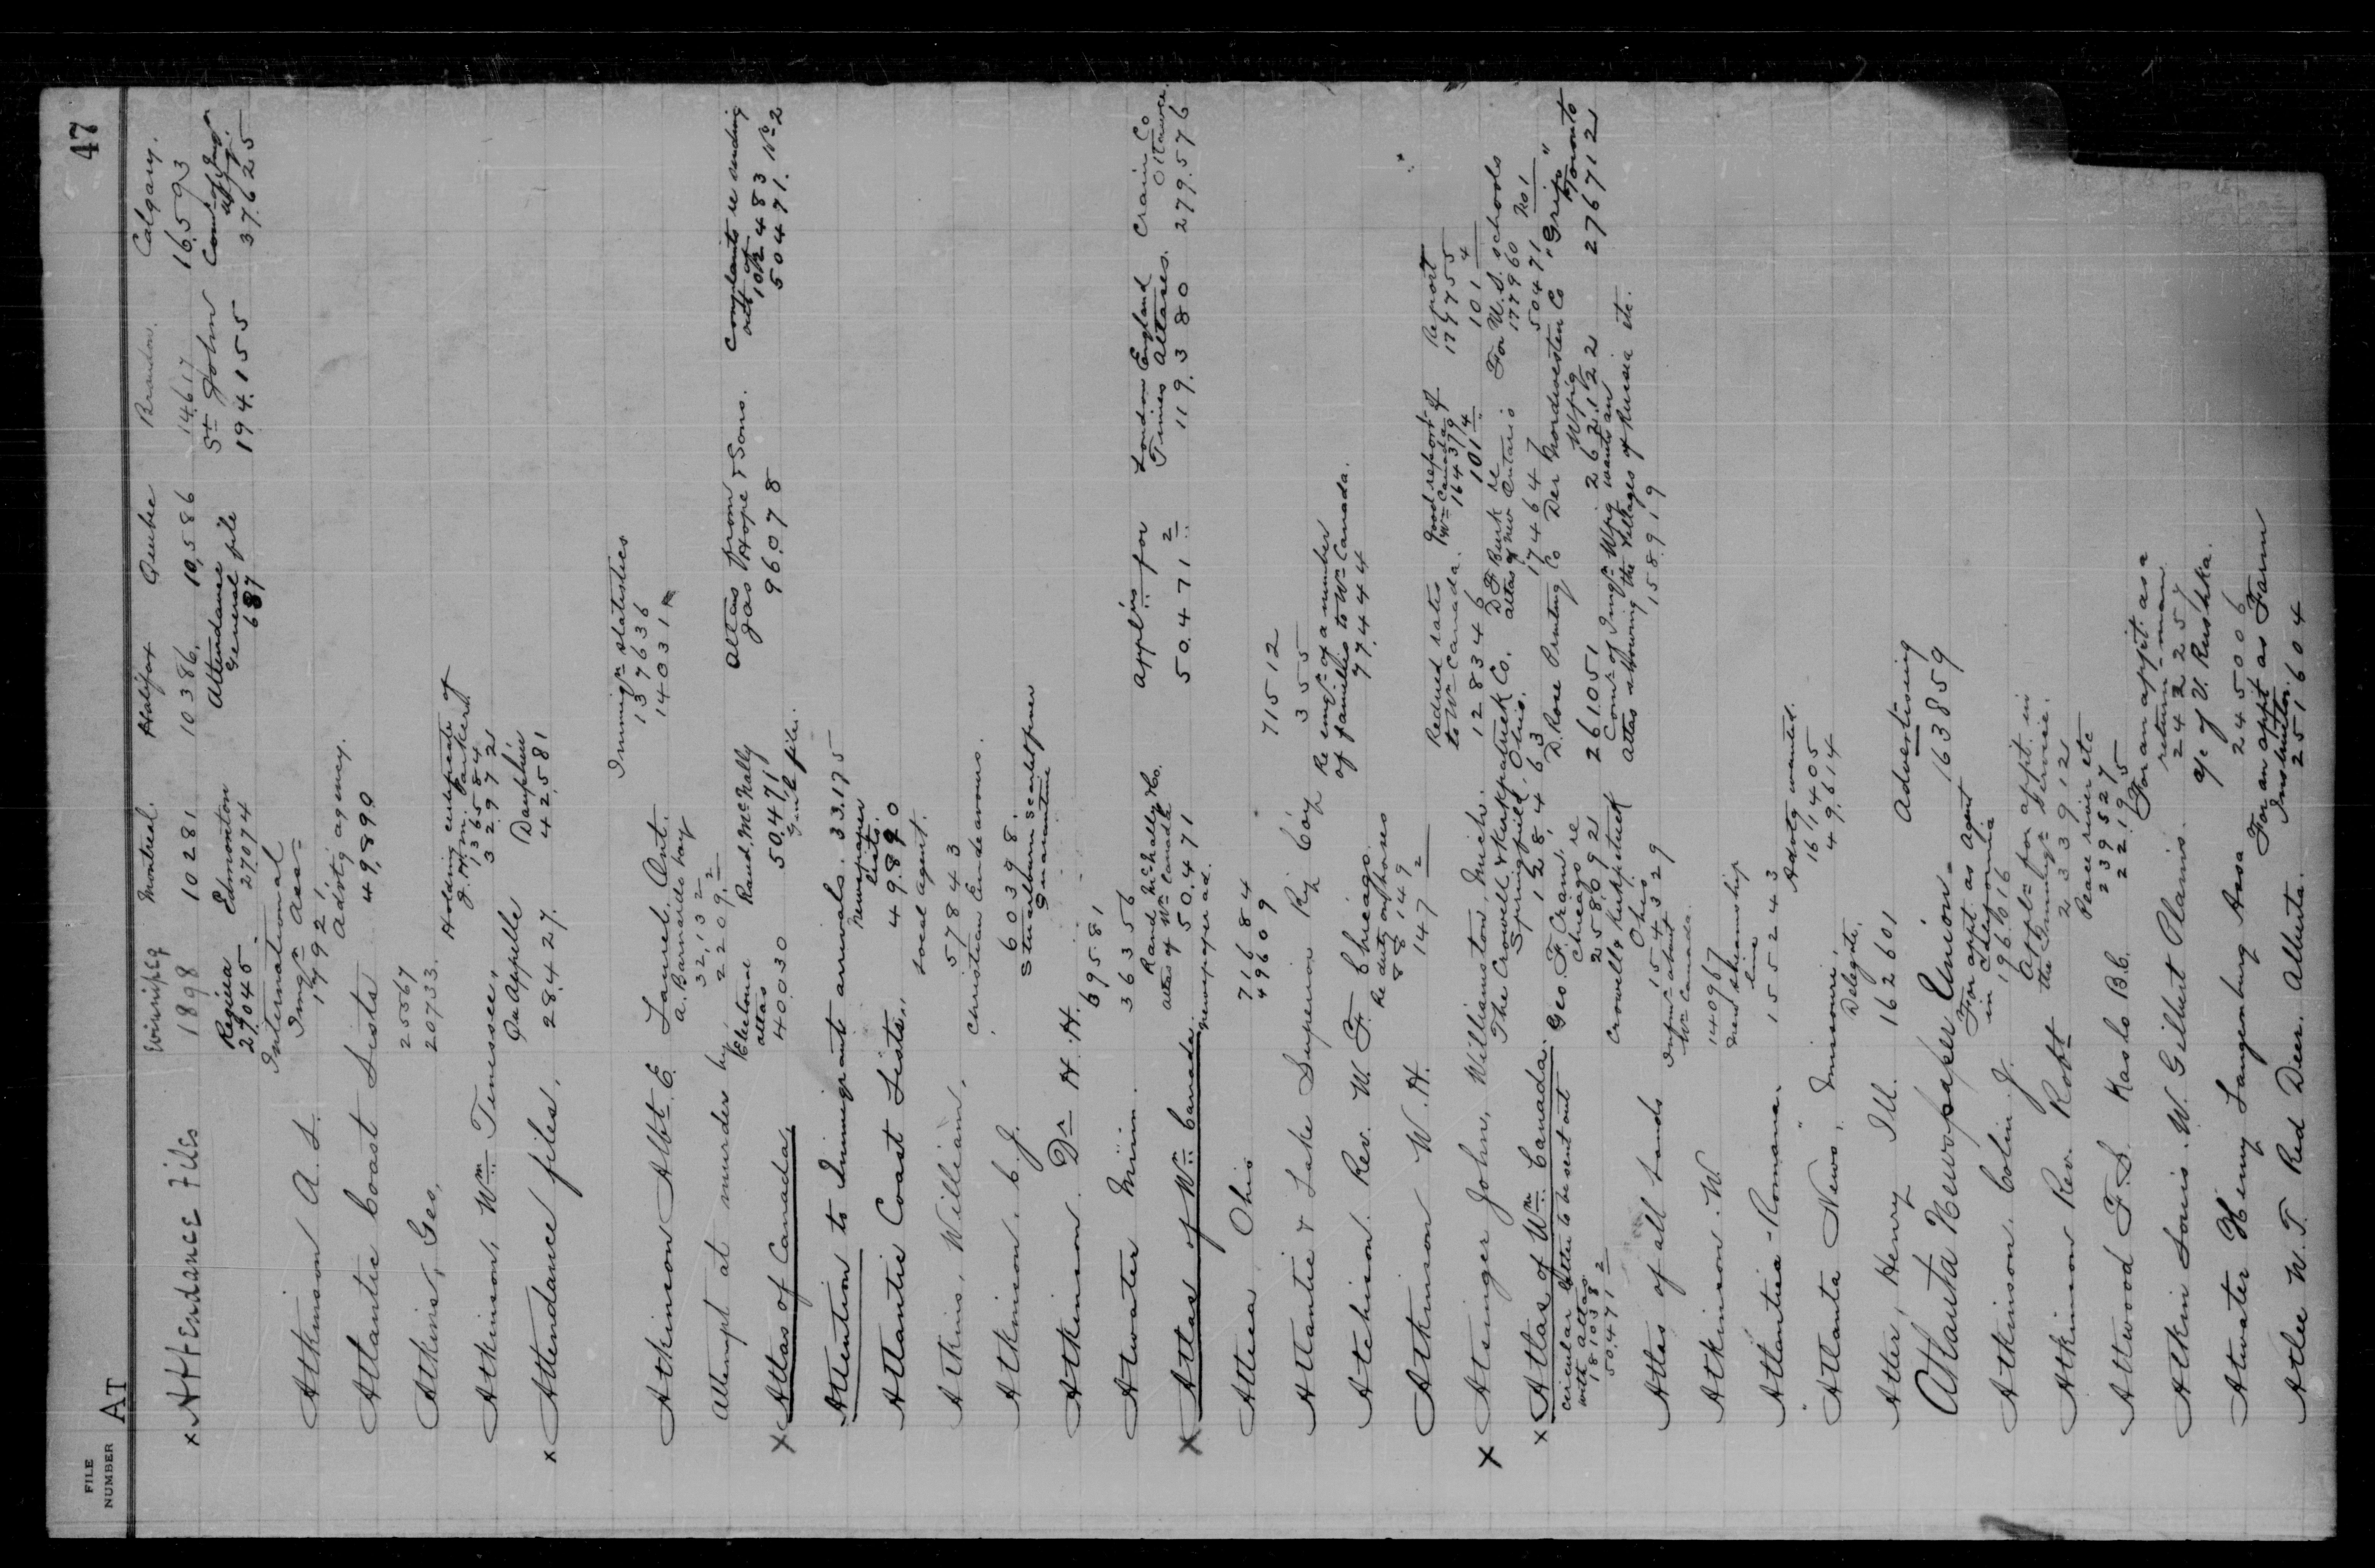 47
FILE NUMBER
AT
Winnipeg Montreal. Halifax Quebec Brandon. Calgary.
x Attendance Files 1898 10281 10386. 10,586 14617 16593
Regina Edmonton Attendance St John Com of Imgn
27045. 27074 General file 194.155 37625
687
International
Imgn Assn
Atkinson A. L. 17921
Advtg agency.
Atlantic Coast Lists 49,890
25567
Atkins, Geo, 20733.
Holding certificate of
J. H. M. Parker
136584
Atkinson, Wm Tennessee, 32972
Qu'Appelle Dauphin
x Attendance files, 28427. 42581
Immign statistics
137636
Atkinson Albt E. Laurel. Ont. 14031
A. Barnardo boy
32,132
Attempt at murder by 2209.2
Electoral atlas Rand, McNally Atlas from Jas Hope & Sons. Complaints re sending out of
x Atlas of Canada, 40030 50.471 96078 10/2483 No 2
50471.
Genl file.
Attention to Immigrant arrivals. 33175
Newspaper Lists.
Atlantic Coast Lists,, 49.890
Local agent.
Atkins, William, 57843
Christian Endeavours.
Atkinson. C. J. 60398.
Atkinson. Dr H. H. 69581
Atwater Minn. 36356
Rand McNally & Co. Appl'ns for London England Crain Co
Atlas of Wn Canada Times Atlases. Ottawa
x Atlas of Wn Canada. 50.471 50.471 2 119.380 279.576
Newspaper ad.
Attica Ohio 71684 71512
49609
Atlantic & Lake Superior Ry Coy 355
Re imgn of a number
of families to Wn Canada.
Atchison. Rev. W. F. Chicago. 77444
Re duty on horses
88149 2
Atkinson W. H. 147
Reduced rates to Wn Canada. Good report of Wn Canada Report
164379 179755
x Atzinger John, Williamston, Mich. 128346 101 4 101 4
The Crowell & Kirkpatrick Co. D. F. Burk re For U.S. schools
Springfield, Ohio. atlas of New Ontario 177960
x Atlas of Wn Canada. 128463 174647 50471 No 1
Circular letter to be sent out with atlas Geo. F. Cram. D. Rose Printing Co Der Nordwesten Co "Grip"
Chicago re Wpg Toronto
181038 258092 261051 262122 276712
50,471 2
Crowell & Kirkpatrick Comr of Imgn Wpg wants an
Ohio atlas showing the villages of Russia etc.
Atlas of all Lands 154329 158919
Infmn about Wn Canada.
Atkinson. W. 140967
New steamship line
Atlantia - Romana. 155243
Advtg wanted.
161405
Atlanta News, Missouri, 49,614
Delegate.
Atter, Henry Ill. 162601
Advertising
Atlanta Newspaper Union - 163859
For appt as Agent
Atkinson. Colin J. 196016
Appln for appt. in
the Immign Service.
Atkinson Rev. Robt 233912
Peace river etc
239527
Attwood F. S. Kaslo B.C. 22195
For an appt. as a
return-man
Atkin Louis. W. Gilbert Plains. 242257
a/c of V. Rushka.
Atwater Henry Langenburg Assa 245006
For an appt as Farm
Instructor.
Atlee W. T. Red Deer. Alberta. 251604